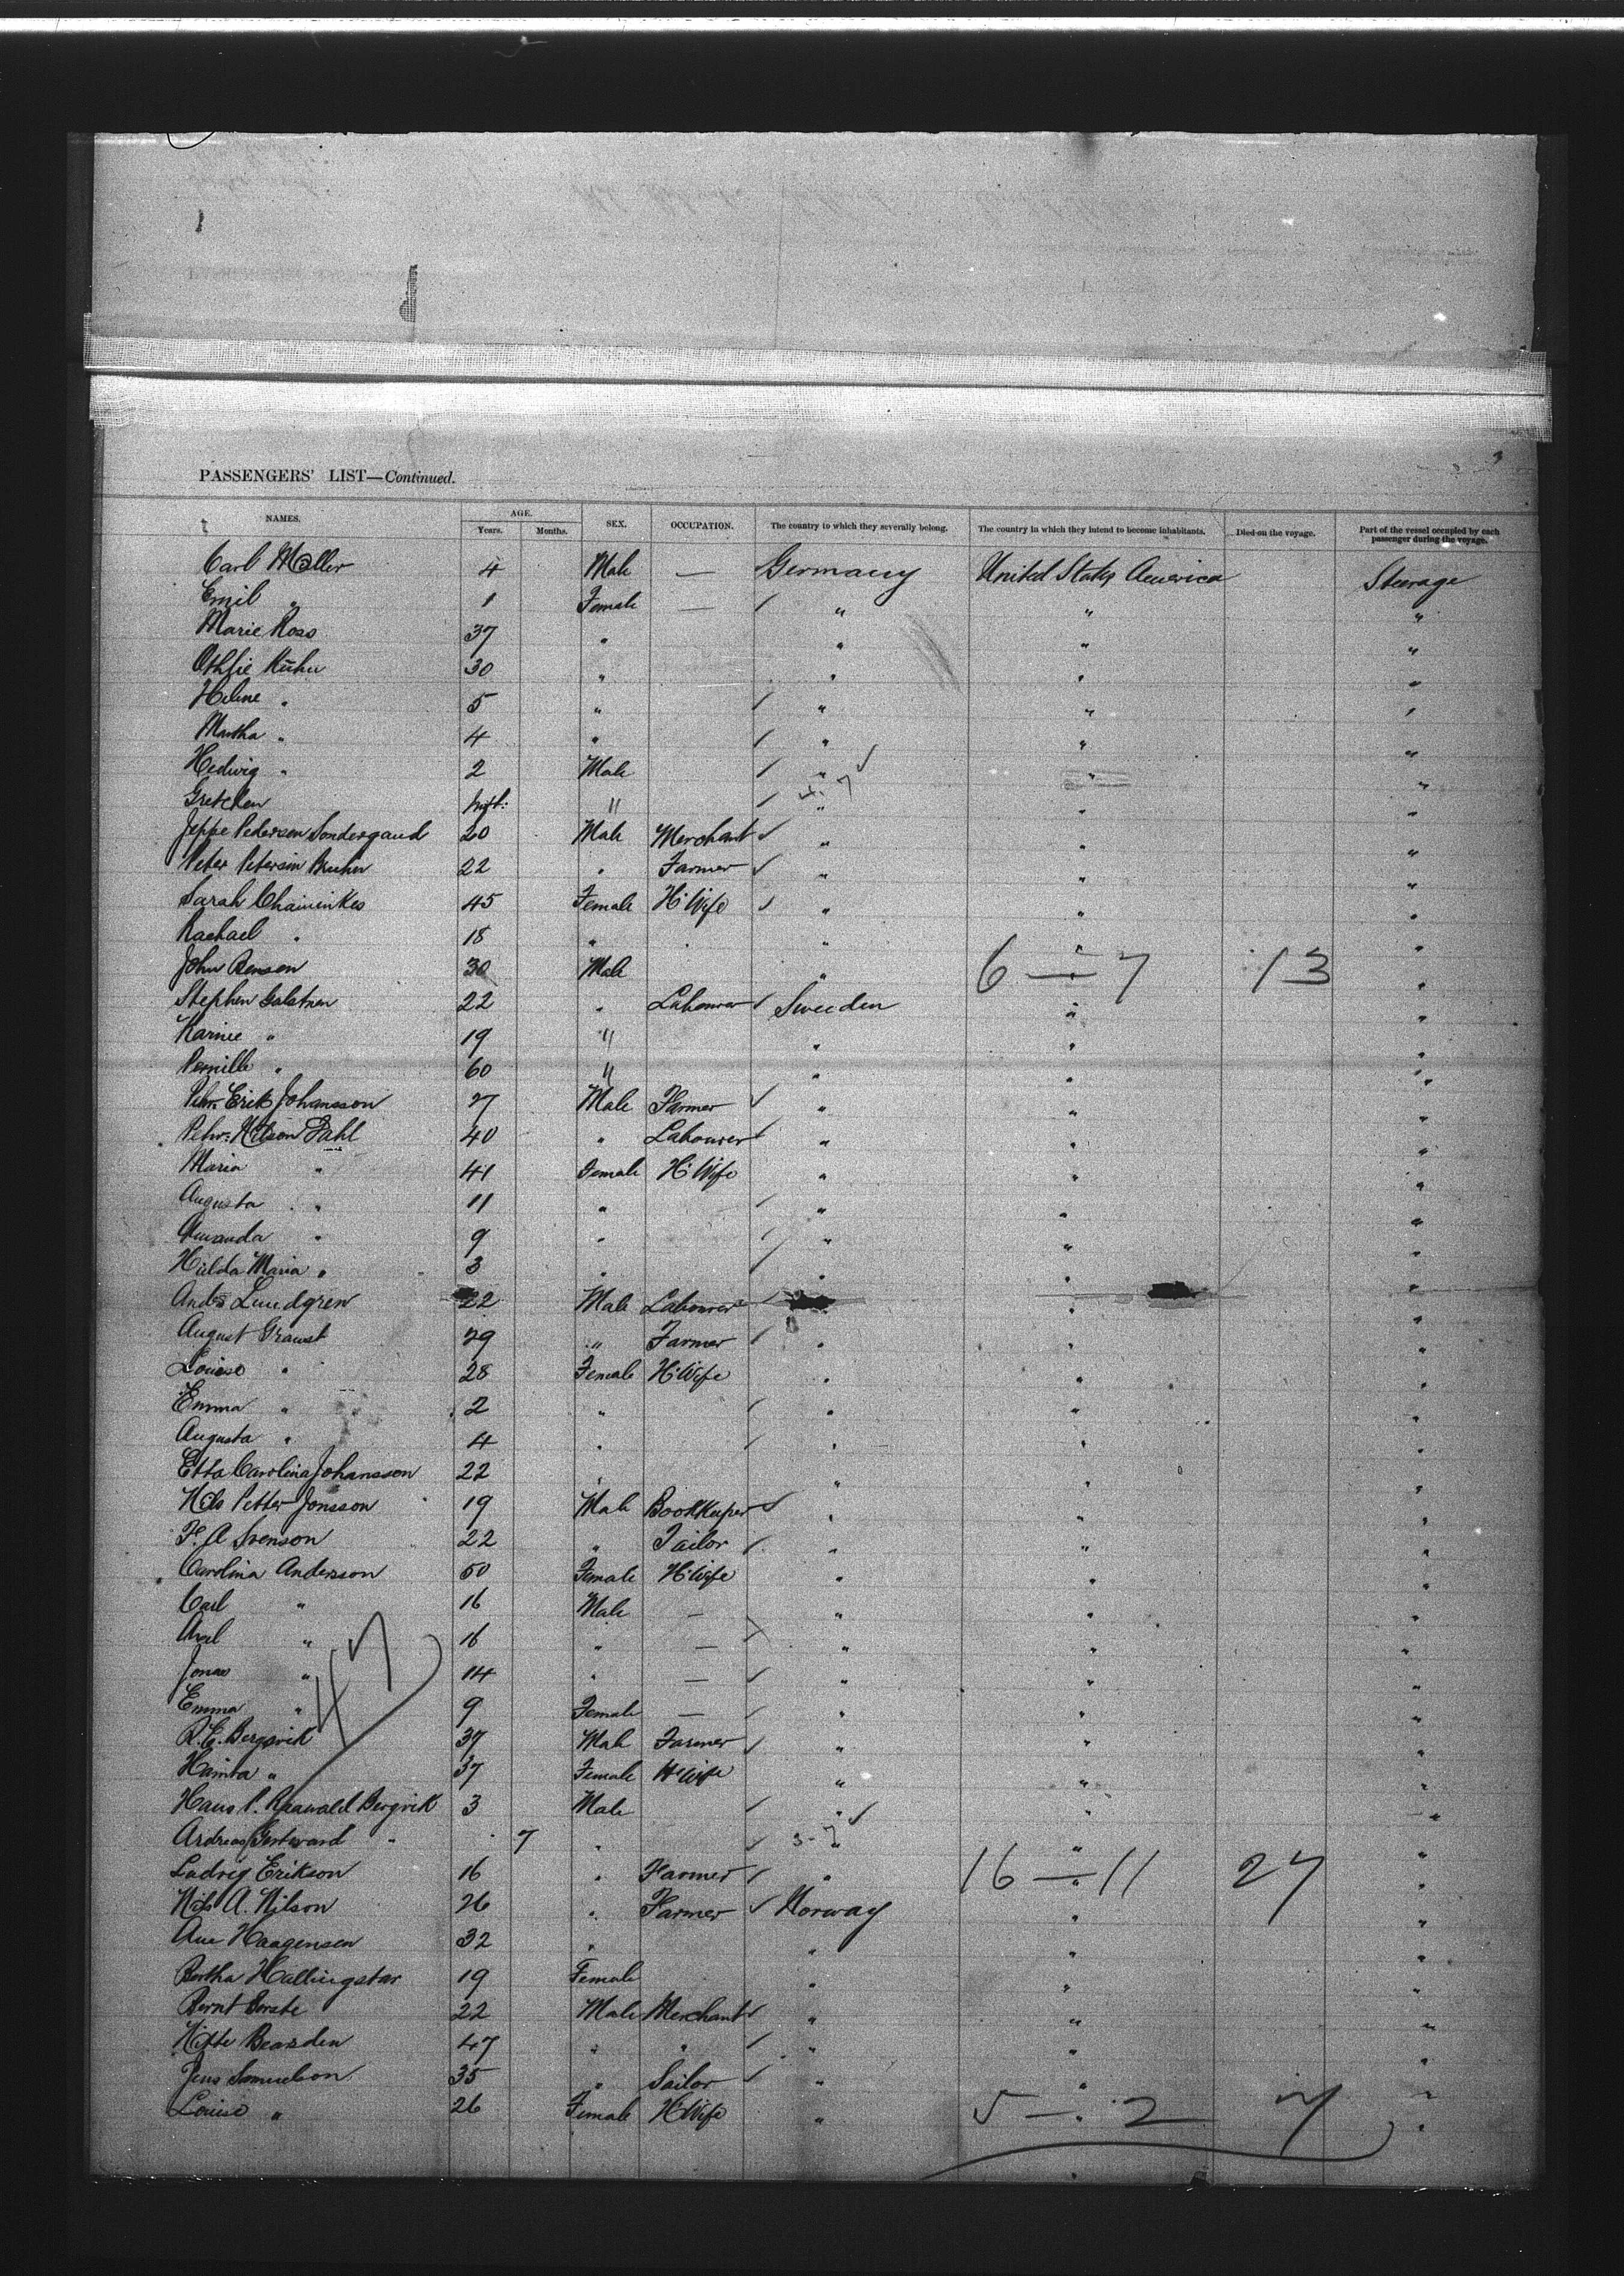 PASSENGERS' LIST—Continued.
NAMES. AGE. Years. Months. SEX. OCCUPATION. The country to which they severally belong. The country in which they intend to become inhabitants. Died on the voyage. Part of the vessel occupied by each passenger during the voyage.
Carl Möller 4 Male — Germany United States America Steerage
Emil " 1 Female — " " "
Marie Ross 37 " " " "
Kühn 30 " " " "
Helene " 5 " " " "
Martha " 4 " " " "
Hedwig " 2 Male " " "
Gretchen Inft: " " " "
Jeppe Pedersen Sondergaard 20 Male Merchant " " "
Peter Petersen Bruhn 22 " Farmer " " "
Sarah 45 Female H. Wife " " "
Rachael " 18 " " " "
John Benson 30 Male " 6 — 7 13 "
Stephen 22 " Labourer Sweeden " "
" 19 " " " "
Pernille " 60 " " " "
Pehr. Erik Johansson 27 Male Farmer " " "
Pehr: Nilson Dahl 40 " Labourer " " "
Maria " 41 Female H. Wife " " "
Augusta " 11 " " " "
Amanda " 9 " " " "
Hulda Maria " 3 " " " "
Lundgren 22 Male Labourer " "
August 29 " Farmer " " "
Louise " 28 Female H. Wife " " "
Emma " 2 " " " "
Augusta " 4 " " " "
Etta Carolina Johansson 22 " " " "
Nels Petter Jonsson 19 Male Bookkeeper " " "
F. A Svenson 22 " Tailor " " "
Carolina Anderson 50 Female H. Wife " " "
Carl " 16 Male — " " "
Axel " 16 " — " " "
Jonas " 14 " — " " "
Emma " 9 Female — " " "
47
R. E. Bergsvik 37 Male Farmer " " "
" 37 Female H. Wife " " "
Hans P. Bergvik 3 Male " " "
Andreas " 7 " 3-7 " "
Ludvig Erikson 16 " Farmer " 16 — 11 27 "
Nils A. Nilson 26 " Farmer Norway " "
Ane Haagensen 32 " " " "
Bertha Hallingstar 19 Female " " "
Bernt 22 Male Merchant " " "
Bearden 47 " " " " "
Jens Samuelson 35 " Sailor " " "
Louise " 26 Female H. Wife " 5 — 2 7 "